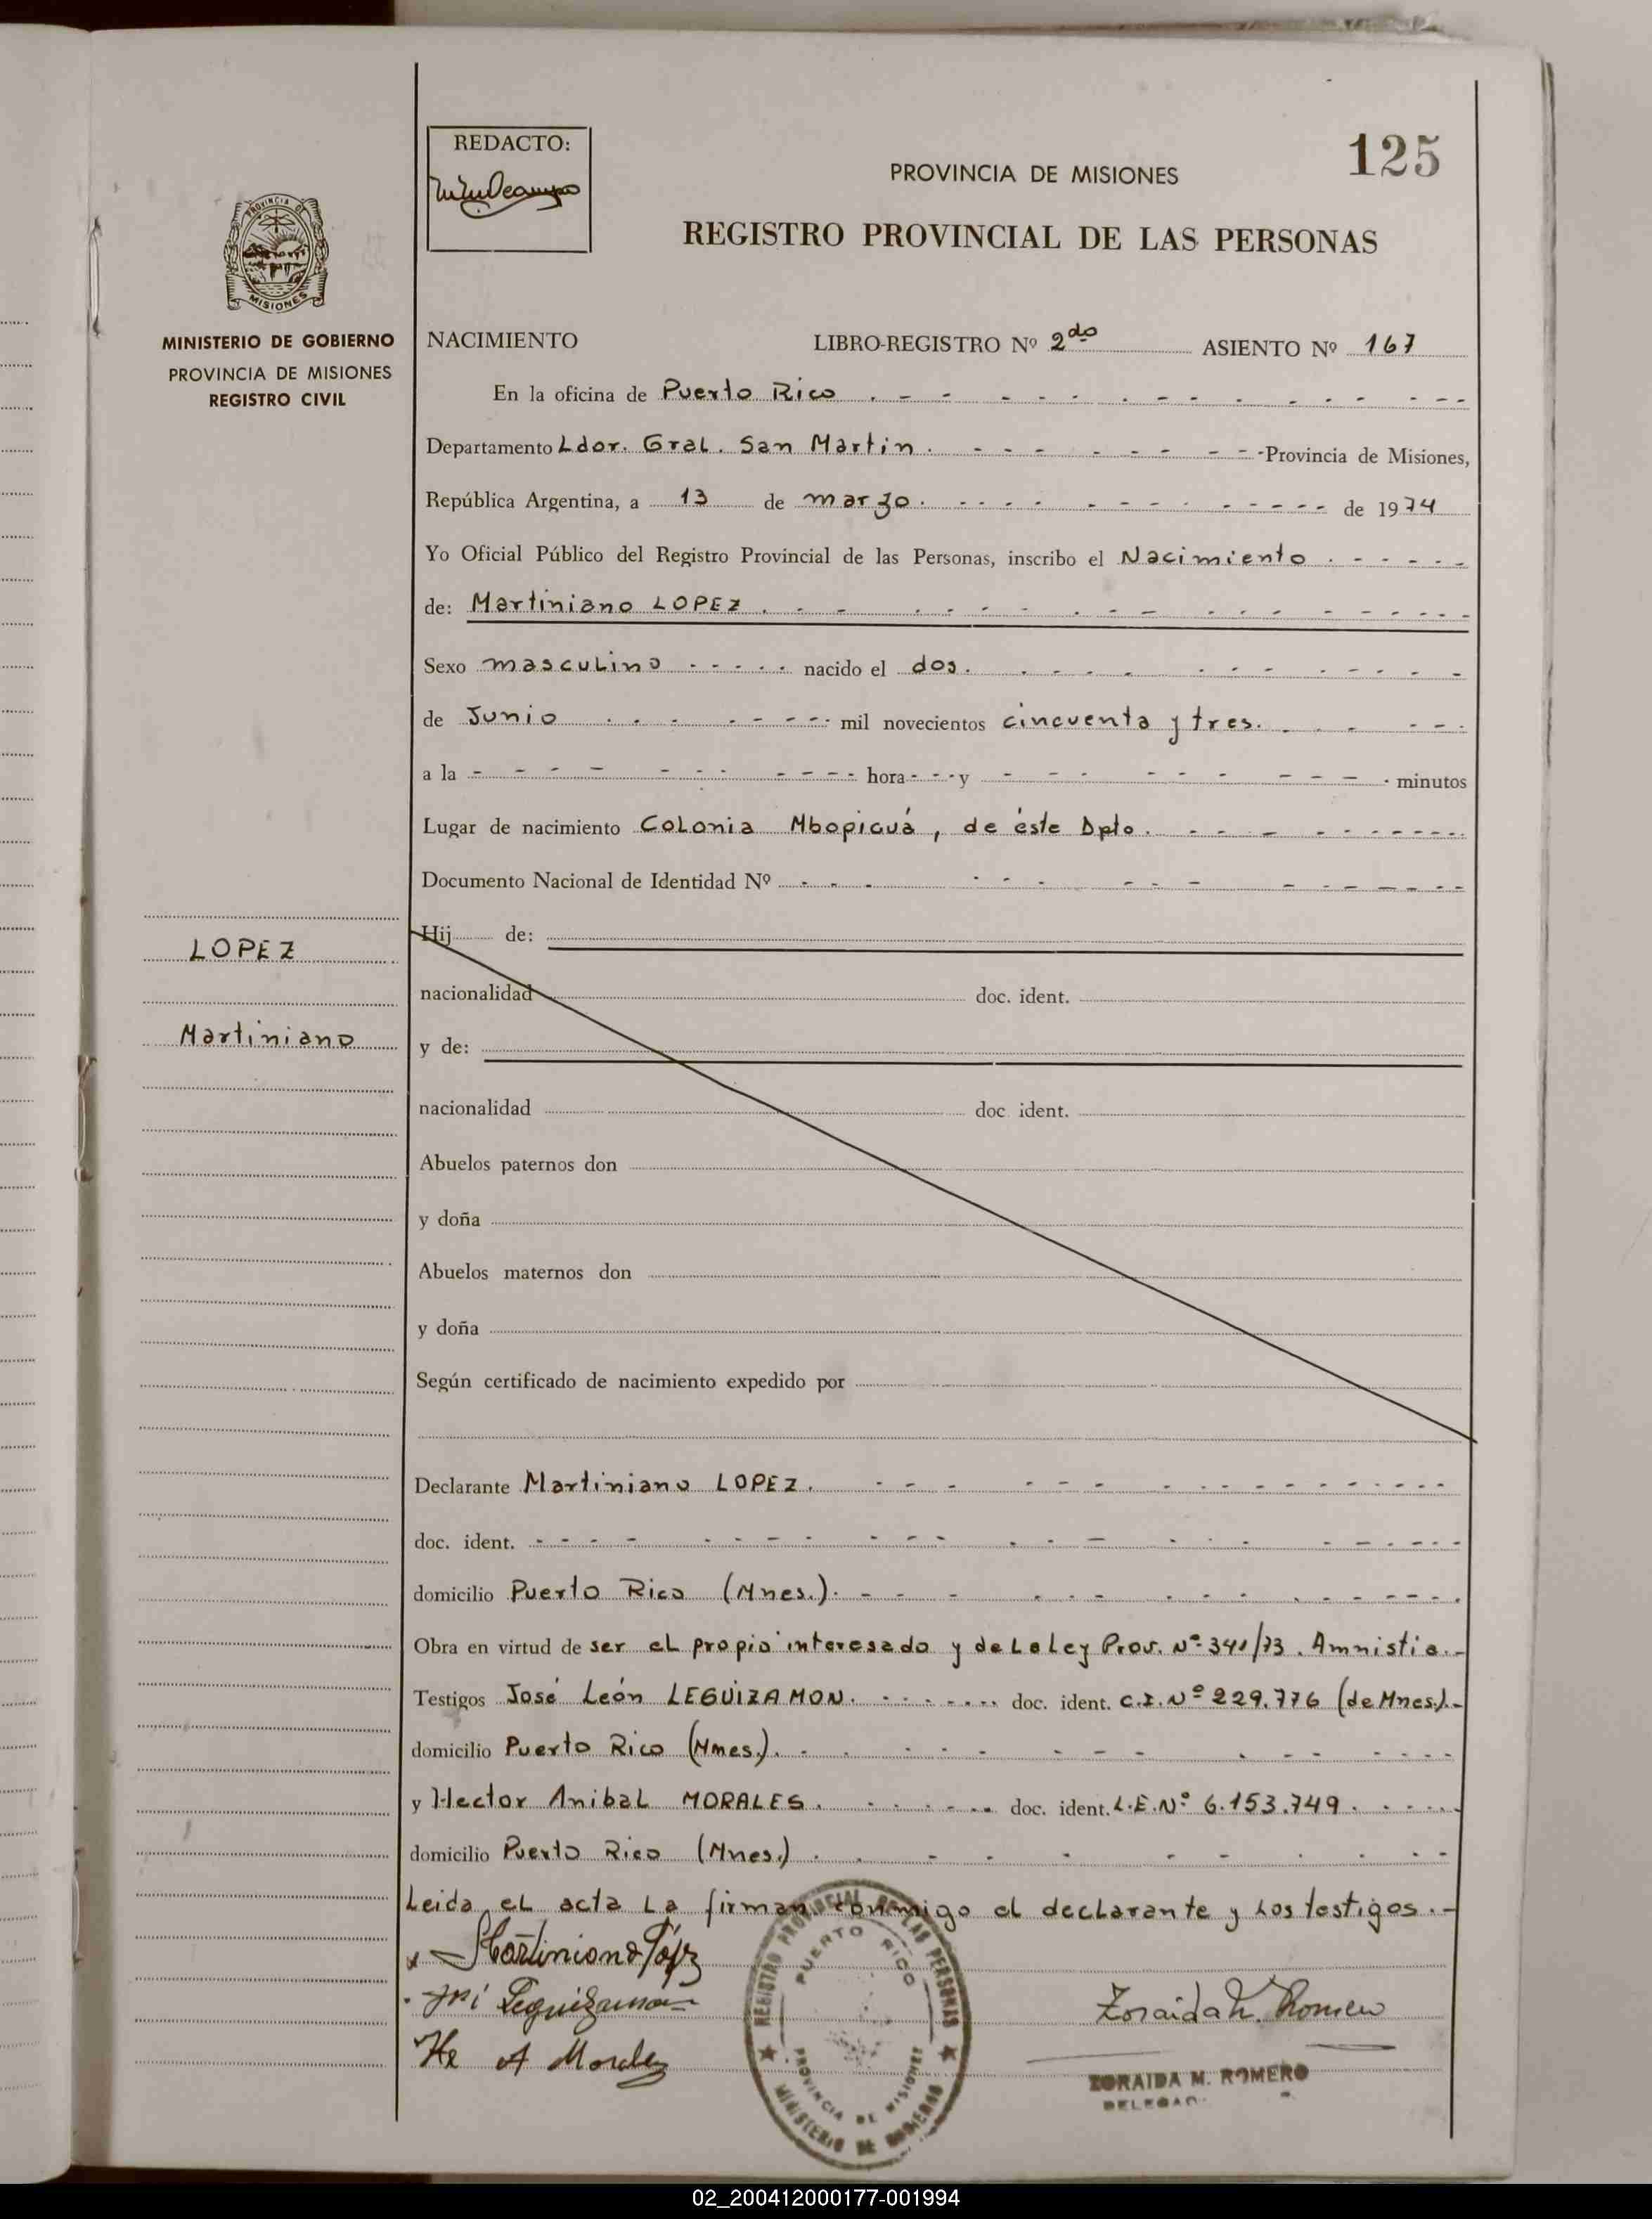 REDACTO:
125
PROVINCIA DE MISIONES
REGISTRO PROVINCIAL DE LAS PERSONAS
PROVINCIA DE
MISIONES
MINISTERIO DE GOBIERNO
PROVINCIA DE MISIONES
REGISTRO CIVIL
NACIMIENTO LIBRO-REGISTRO Nº 2do ASIENTO Nº 167
En la oficina de Puerto Rico
Departamento Ldor. Gral. San Martín. Provincia de Misiones,
República Argentina, a 13 de marzo. de 1974
Yo Oficial Público del Registro Provincial de las Personas, inscribo el Nacimiento
de: Martiniano LOPEZ
Sexo masculino nacido el dos.
de Junio mil novecientos cincuenta y tres.
a la hora y minutos
Lugar de nacimiento Colonia Mbopicuá, de éste Dpto.
Documento Nacional de Identidad Nº
Hij de:
LOPEZ
nacionalidad doc. ident.
Martiniano
y de:
nacionalidad doc. ident.
Abuelos paternos don
y doña
Abuelos maternos don
y doña
Según certificado de nacimiento expedido por
Declarante Martiniano LOPEZ.
doc. ident.
domicilio Puerto Rico (Mnes.).
Obra en virtud de ser el propio interesado y de la Ley Prov. Nº 341/73. Amnistia.-
Testigos José León LEGUIZAMON. doc. ident. C.I. Nº 229.776 (de Mnes.).-
domicilio Puerto Rico (Mnes.).
y Hector Anibal MORALES. doc. ident. L.E. Nº 6.153.749.
domicilio Puerto Rico (Mnes.)
Leida el acta la firman conmigo el declarante y los testigos.-
x Martiniano López
José Leguizamon
He A Morales
Zoraida M. Romero
REGISTRO PROVINCIAL DE LAS PERSONAS
PUERTO RICO
PROVINCIA DE MISIONES
MINISTERIO DE GOBIERNO
ZORAIDA M. ROMERO
02_200412000177-001994